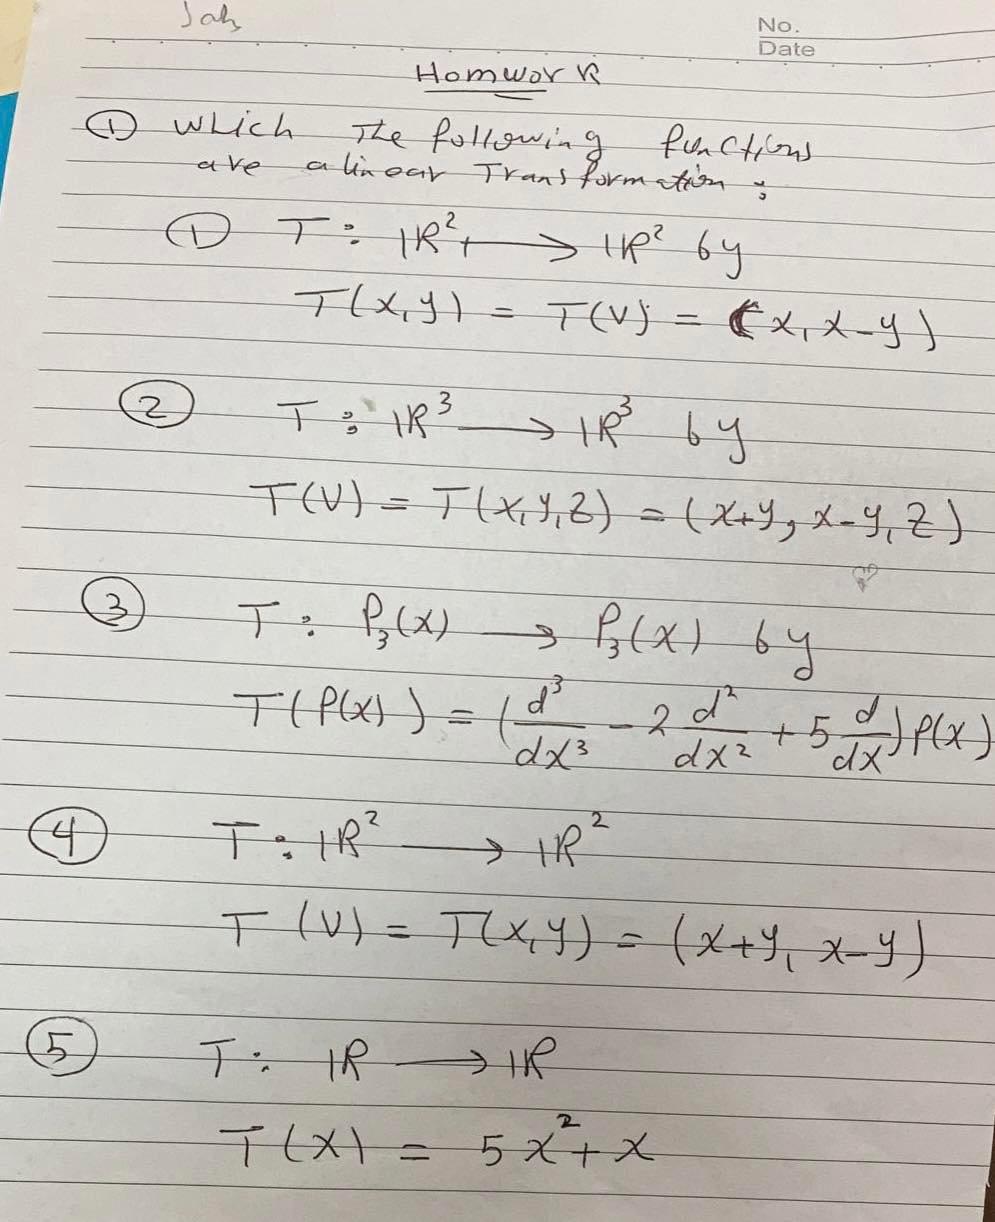 No.
Date
Homwork
① which The following functions
are a linear Transformation :
① T : IR² → IR² by
T(x,y) = T(V) = (x, x-y)
② T : IR³ → IR³ by
T(V) = T(x,y,z) = (x+y, x-y, z)
③ T : P₃(x) → P₃(x) by
T(P(x)) = (d³/dx³ - 2 d²/dx² + 5 d/dx) P(x)
④ T : IR² → IR²
T(V) = T(x,y) = (x+y, x-y)
⑤ T : IR → IR
T(x) = 5x² + x